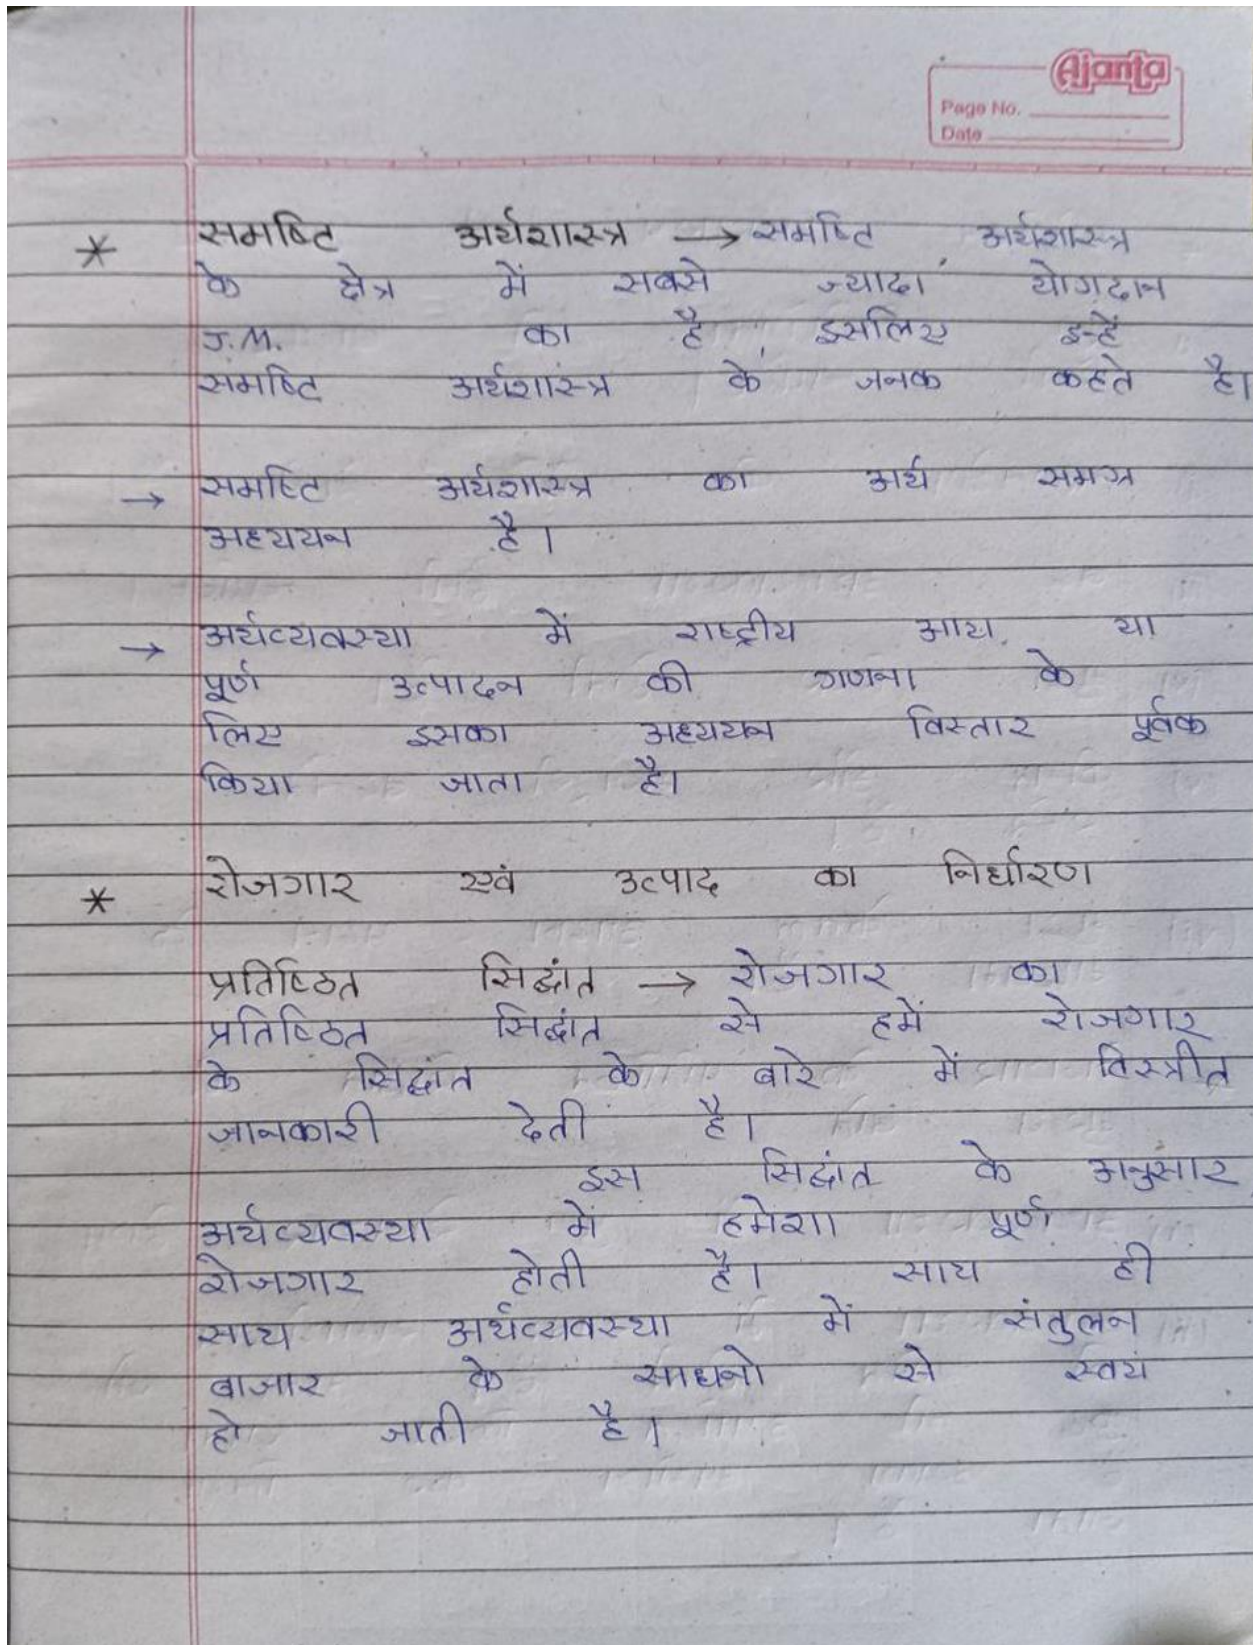 Ajanta
Page No.
Date
* समष्टि अर्थशास्त्र → समष्टि अर्थशास्त्र
के क्षेत्र में सबसे ज्यादा योगदान
J.M. का है, इसलिए इन्हें
समष्टि अर्थशास्त्र के जनक कहते है।
→ समष्टि अर्थशास्त्र का अर्थ समग्र
अध्ययन है।
→ अर्थव्यवस्था में राष्ट्रीय आय या
पूर्ण उत्पादन की गणना के
लिए इसका अध्ययन विस्तार पूर्वक
किया जाता है।
* रोजगार एवं उत्पाद का निर्धारण
प्रतिष्ठित सिद्धांत → रोजगार का
प्रतिष्ठित सिद्धांत से हमें रोजगार
के सिद्धांत के बारे में विस्त्रीत
जानकारी देती है।
इस सिद्धांत के अनुसार
अर्थव्यवस्था में हमेशा पूर्ण
रोजगार होती है। साथ ही
साथ अर्थव्यवस्था में संतुलन
बाजार के साधनो से स्वयं
हो जाती है।